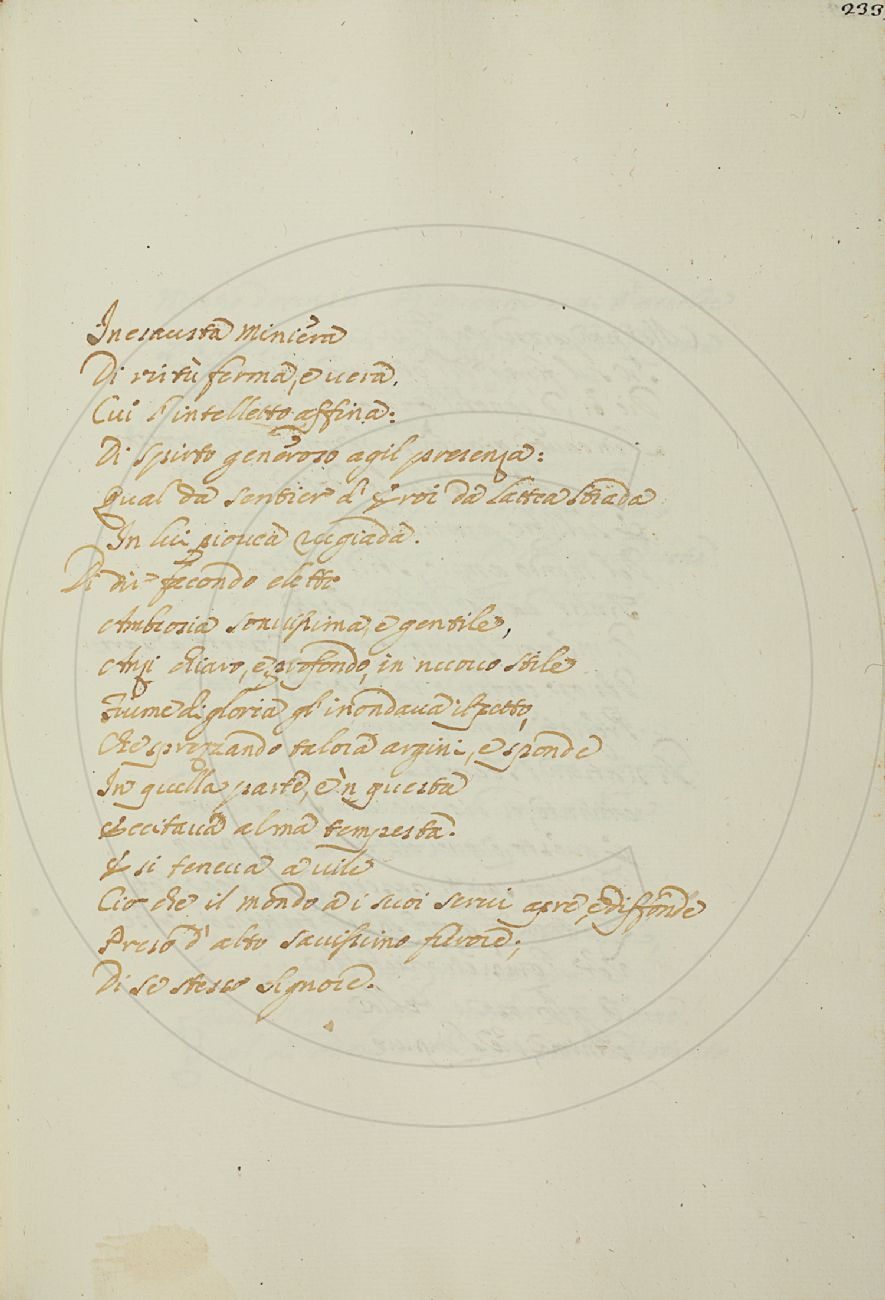 233
Inesausta Miniera
Di virtù ferma, e uera,
Cui l'intelletto affina:
Di spirto generoso agil presenza:
Qual da sentier d'Eroi da Lattea Strada
In lui piouea rugiada.
Di dir fecondo eletto
Ambrosia souissima, e gentile,
Anzi chiaro, e profondo, in nuouo stile
Fiume di gloria gl'inondaua il petto,
Che sprezzando talora argini, e sponde
In quella parte, e 'n questa
Eccitaua alma tempesta.
E si teneua a uile
Ciò che il mondo a i suoi serui apre, e diffonde
Preso d'alto sauissimo furore;
Di se stesso Signore.